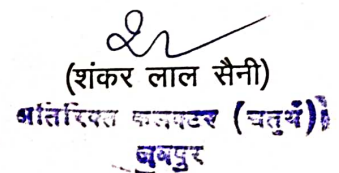 (शंकर लाल सैनी)
अतिरिक्त कलक्टर (चतुर्थ)
जयपुर